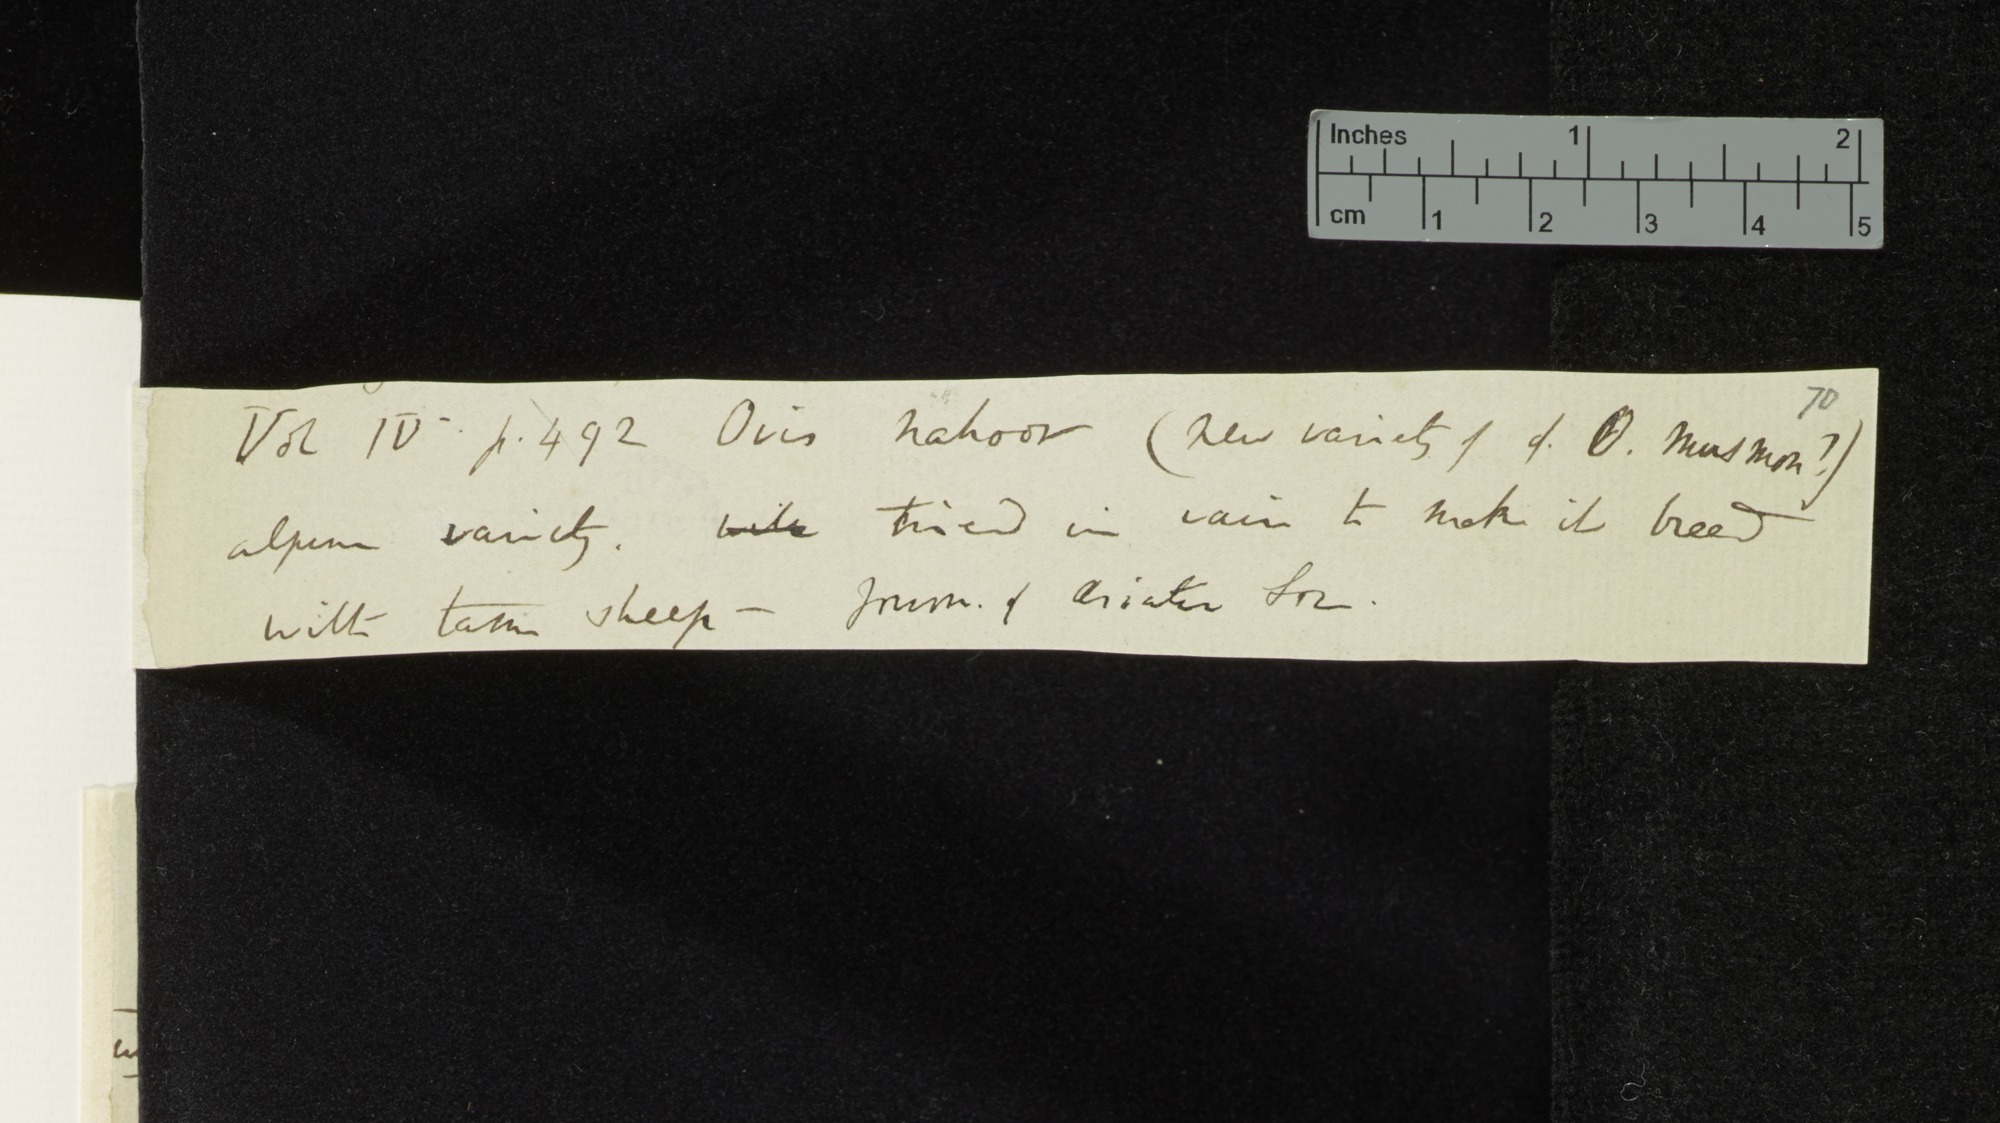 Inches 1 2
cm 1 2 3 4 5
70
Vol IV. p. 492 Ovis nahoor (new variety of O. Musmon?)
alpine variety. tried in vain to make it breed
with tame sheep — Journ. of Asiatic Soc.